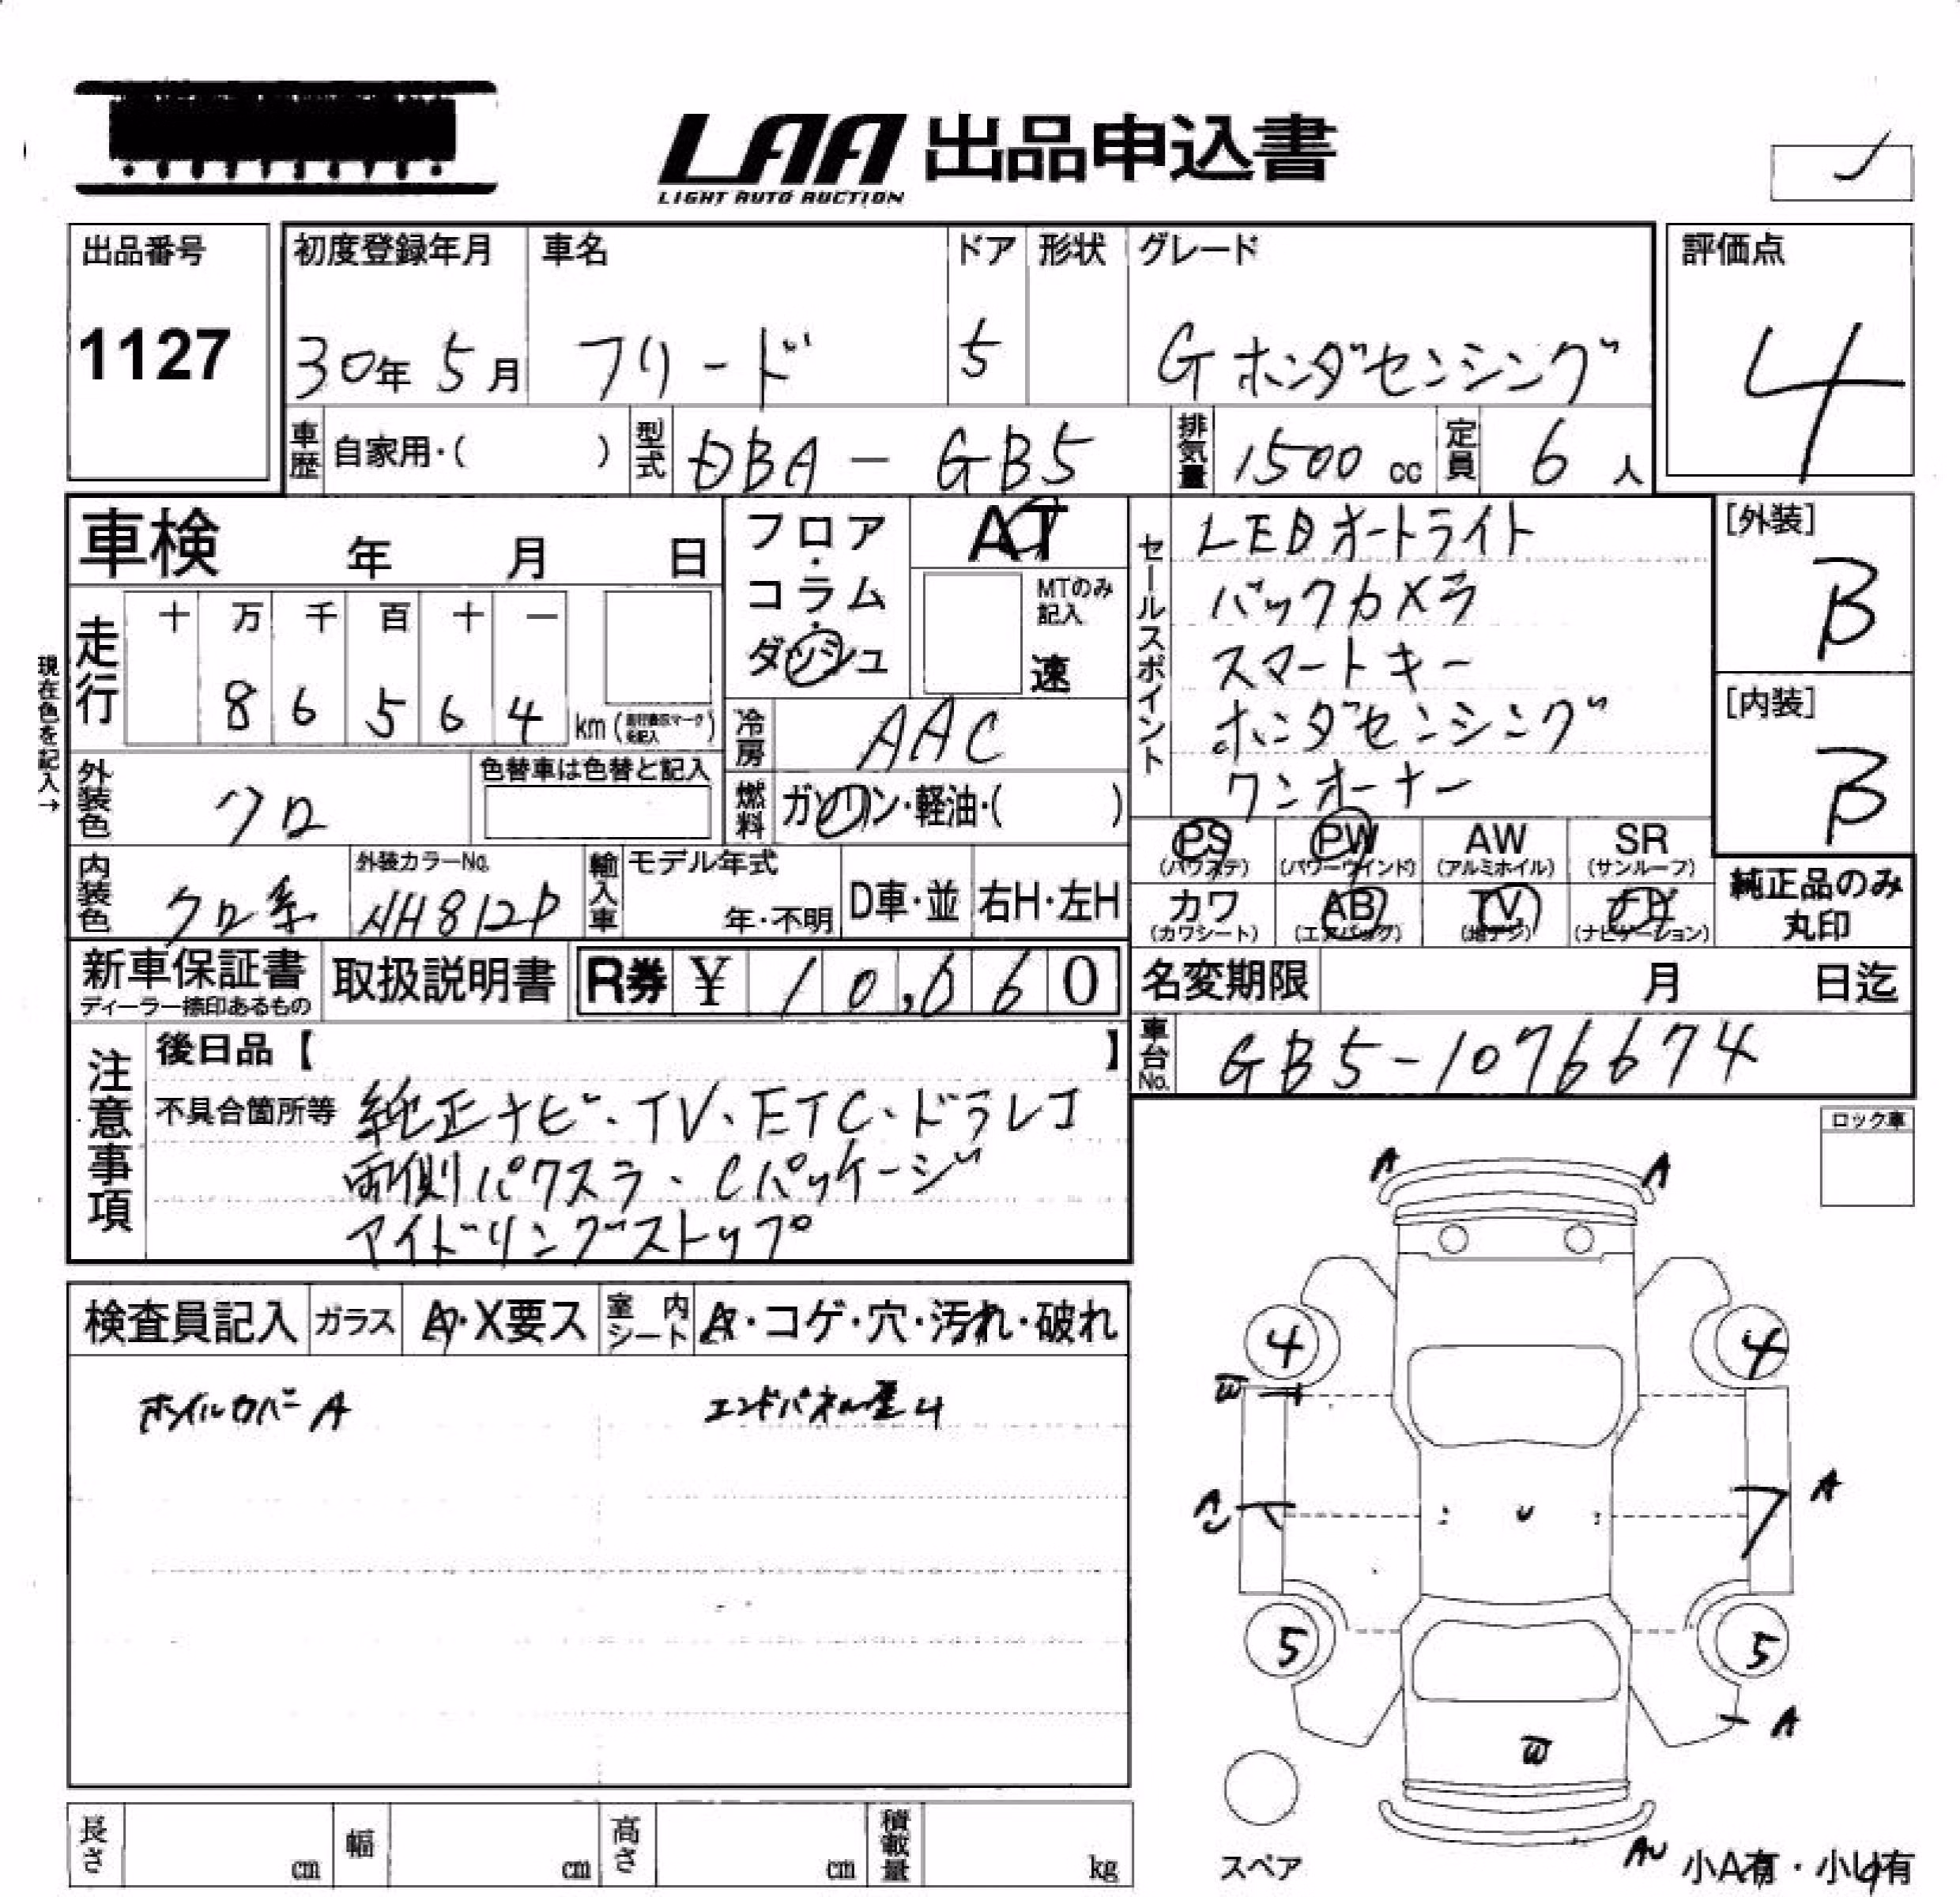 LAA 出品申込書
LIGHT AUTO AUCTION
出品番号
1127
初度登録年月 車名 ドア 形状 グレード
30年 5月 フリード 5 Gホンダセンシング
評価点
4
車歴 自家用・( ) 型式 DBA - GB5 排気量 1500 cc 定員 6 人
車検 年 月 日
フロア・コラム・ダッシュ
AT
MTのみ記入
速
現在色を記入→
走行
十 万 千 百 十 一
8 6 5 6 4 km
冷房 AAC
外装色 クロ
色替車は色替と記入
燃料 ガソリン・軽油・( )
内装色 クロ系
外装カラーNo.
NH812P
輸入車 モデル年式
年・不明
D車・並 右H・左H
セールスポイント
LEDオートライト
バックカメラ
スマートキー
ホンダセンシング
ワンオーナー
[外装]
B
[内装]
B
PS PW AW SR
(パワステ) (パワーウインド) (アルミホイル) (サンルーフ)
カワ AB TV
(カワシート) (エアバッグ) (地デジ) (ナビゲーション)
純正品のみ
丸印
新車保証書
ディーラー捺印あるもの
取扱説明書
R券 ¥ 10,660
名変期限 月 日迄
車台No. GB5-1076674
注意事項
後日品【 】
不具合箇所等 純正ナビ、TV、ETC、ドラレコ
両側パワスラ、Cパッケージ
アイドリングストップ
ロック車
検査員記入 ガラス A・X要ス 室内シート A・コゲ・穴・汚れ・破れ
ホイルカバーA エンドパネル歪U
A A
4 4
W
A
A
5 5
A
W
スペア
AU 小A有・小U有
長さ cm 幅 cm 高さ cm 積載量 kg